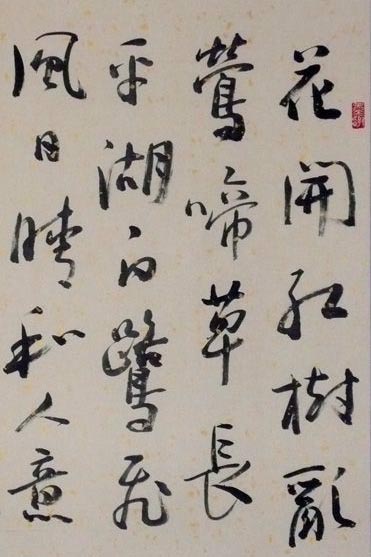 花開紅樹亂
鶯啼草長
平湖白鷺飛
風日晴和人意